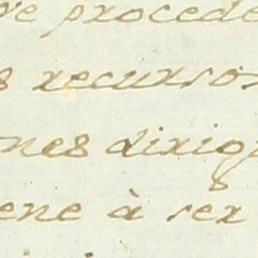 ve procede
s recursos
nes dixig
ene à sex